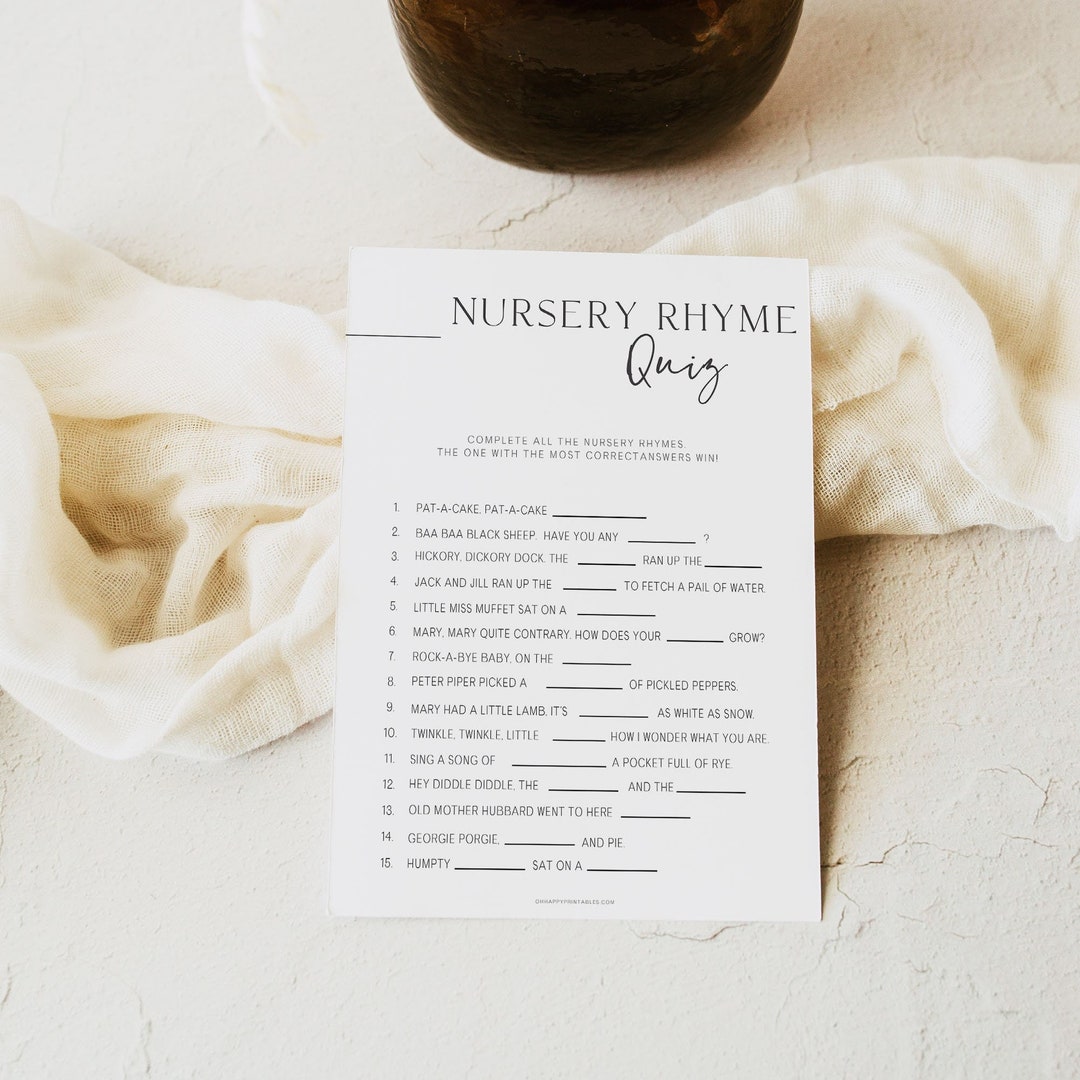 NURSERY RHYME
Quiz
COMPLETE ALL THE NURSERY RHYMES.
THE ONE WITH THE MOST CORRECTANSWERS WIN!
1. PAT-A-CAKE, PAT-A-CAKE ____________
2. BAA BAA BLACK SHEEP. HAVE YOU ANY _________ ?
3. HICKORY, DICKORY DOCK. THE ________ RAN UP THE ________
4. JACK AND JILL RAN UP THE _______ TO FETCH A PAIL OF WATER.
5. LITTLE MISS MUFFET SAT ON A __________
6. MARY, MARY QUITE CONTRARY. HOW DOES YOUR _______ GROW?
7. ROCK-A-BYE BABY, ON THE _________
8. PETER PIPER PICKED A __________ OF PICKLED PEPPERS.
9. MARY HAD A LITTLE LAMB, IT'S _________ AS WHITE AS SNOW.
10. TWINKLE, TWINKLE, LITTLE _______ HOW I WONDER WHAT YOU ARE.
11. SING A SONG OF ____________ A POCKET FULL OF RYE.
12. HEY DIDDLE DIDDLE, THE _________ AND THE _________
13. OLD MOTHER HUBBARD WENT TO HERE _________
14. GEORGIE PORGIE, _________ AND PIE.
15. HUMPTY _________ SAT ON A _________
OHHAPPYPRINTABLES.COM